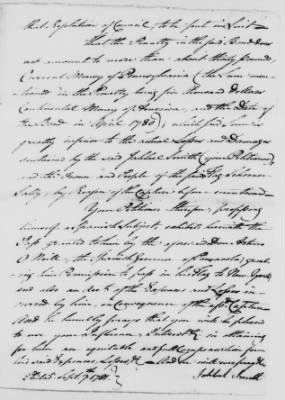 that Resolution of Council, to be put in Suit
that the Penalty in the said Bond does
not amount to more than about thirty Pounds
Current Money of Pennsylvania (the Sum men-
tioned in the Penalty being five thousand Dollars
Continental Money of America, and the Date of
the Bond in April 1780), which said Sum is
greatly inferior to the actual Losses and Damages
sustained by the said Jabbel Smith (your Petitioner)
and the Owners and People of the said
by Reason of the Capture before mentioned
Your Petitioner therefore, professing
himself a Spanish Subject, exhibits herewith the
Pass granted to him by the aforesaid Don Arturo
O Neille, the Spanish Governor of Pensacola, grant-
ing him Permission to pass in his way to New York
and also an Acct. of the Expences and Losses in-
curred by him, in Consequence of the Capture
And he humbly prays that you will be pleased
to use your Influence in obtaining
for him an equitable and full compensation for
his said Expences, Losses &c. And he will ever pray &c.
Philad. Sept. 7th 1781. Jabbel Smith